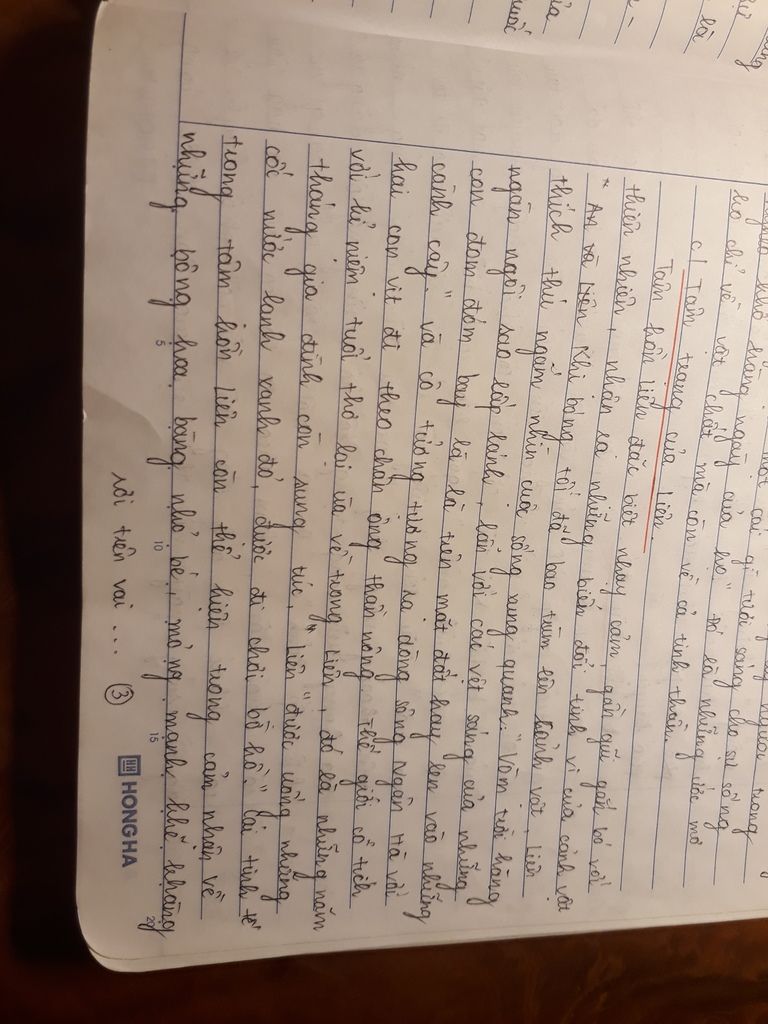 nghèo khổ hằng ngày. một cái gì tươi sáng cho sự sống
họ chỉ về vật chất mà còn về cả tinh thần.
c/ Tâm trạng của Liên.
Tâm hồn liên đặc biệt nhạy cảm, gần gũi gắn bó với
thiên nhiên, nhận ra những biến đổi tinh vi của cảnh vật
* An và Liên khi bóng tối đã bao trùm lên cảnh vật, liên
thích thú ngắm nhìn cuộc sống xung quanh: "Vòm trời hàng
ngàn ngôi sao lấp lánh, lẫn với các vệt sáng của những
con đom đóm bay là là trên mặt đất hay len vào những
cành cây" và cô tưởng tượng ra dòng sông Ngân Hà với
hai con vịt đi theo chân ông thần nông. Thế giới cổ tích
với kỉ niệm tuổi thơ lại ùa về trong Liên, đó là những năm
tháng gia đình còn sung túc, liên "được uống những
cốc nước lạnh xanh đỏ, được đi chơi bờ hồ". Cái tinh tế
trong tâm hồn liên còn thể hiện trong cảm nhận về
những bông hoa bàng nhỏ bé, mỏng mạnh khẽ khàng
rơi trên vai... (3)
5 10 15 20
HONG HA